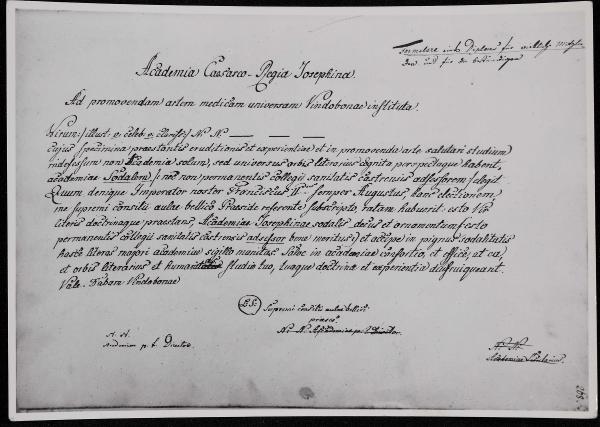 Formulare eines Diploms für
und für die beständigen
Academia Caesareo-Regia Josephina.
Ad promovendam artem medicam universam Vindobonae instituta.
Virum |: illust: e: celeb: e: clariss: | N: N: — — —
Cujus specimina praestantis eruditionis et experientiae et in promovenda arte salutari studium
indefessum non Academia solum, sed universus orbis literarius cognita perspectaque habent,
academiae Sodalem |: nec non permanentis collegii sanitatis castrensis adsessorem :| elegit.
Quum denique Imperator noster Franciscus IIdus semper Augustus, hanc electionem,
me supremi consilii aulae bellici Praeside referente subscripto, ratam habuerit: esto Vir
literis doctrinaque praestans, Academiae Josephinae sodalis, decus et ornamentum |: esto
permanentis collegii sanitatis castrensis adsessor bene meritus :| et accipe in pignus sodalitatis
hasce literas majori academiae sigillo munitas. Salve in academiae consortio, et effice, ut ea,
et orbis literarius et humanitas studio tuo, tuaque doctrina et experientia diu fruiqueant.
Vale. Dabam Vindobonae
L: S: Supremi consilii aulae bellici
praeses
N: N: Academiae p: t: Director
N. N.
Academiae p. t. Director
N: N:
Academiae Secretarius.